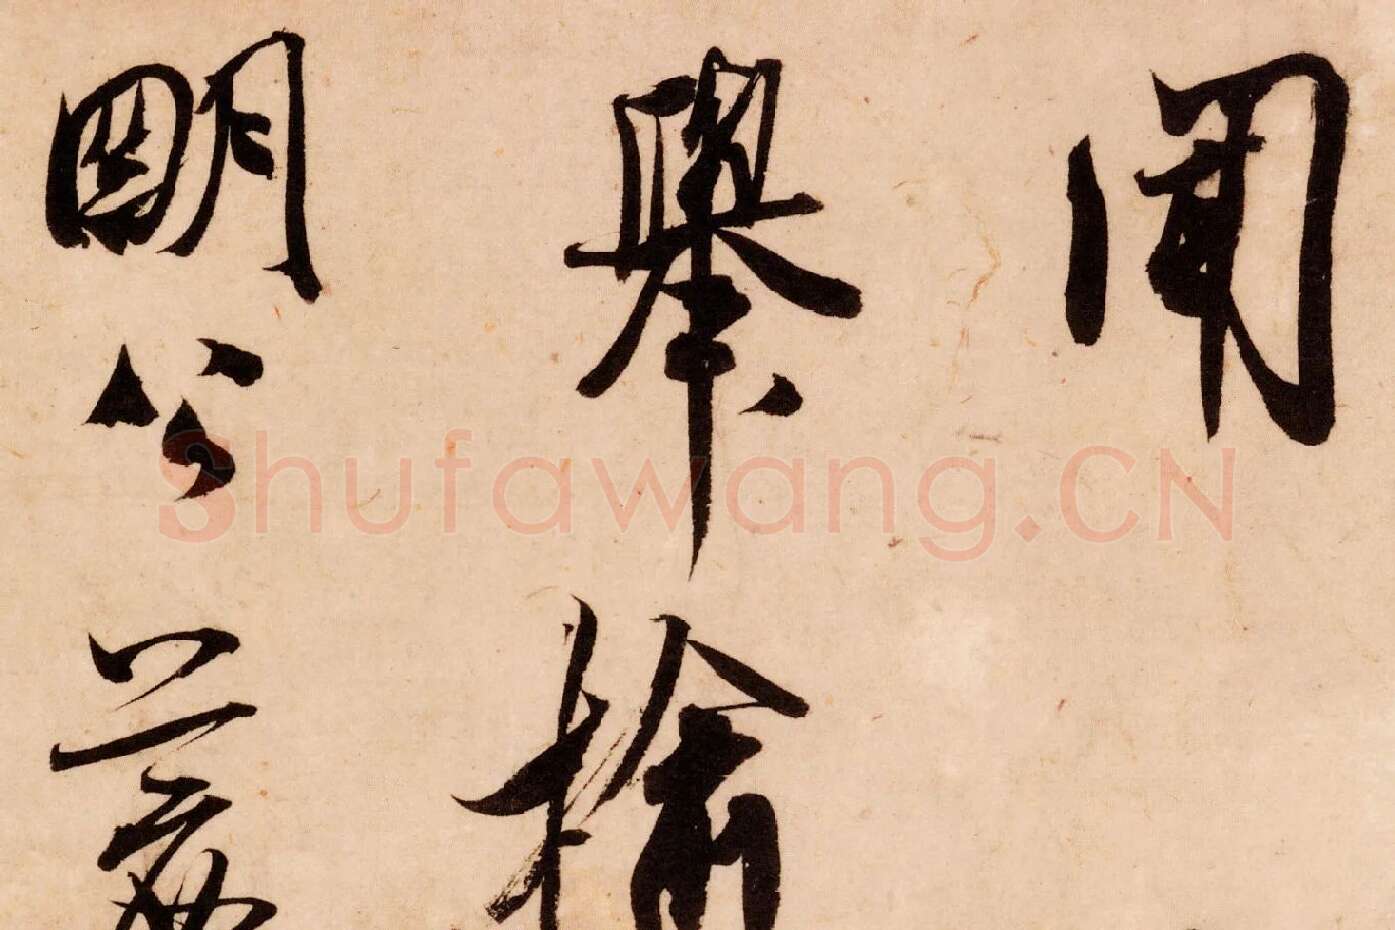 聞
舉
明公
Shufawang.CN